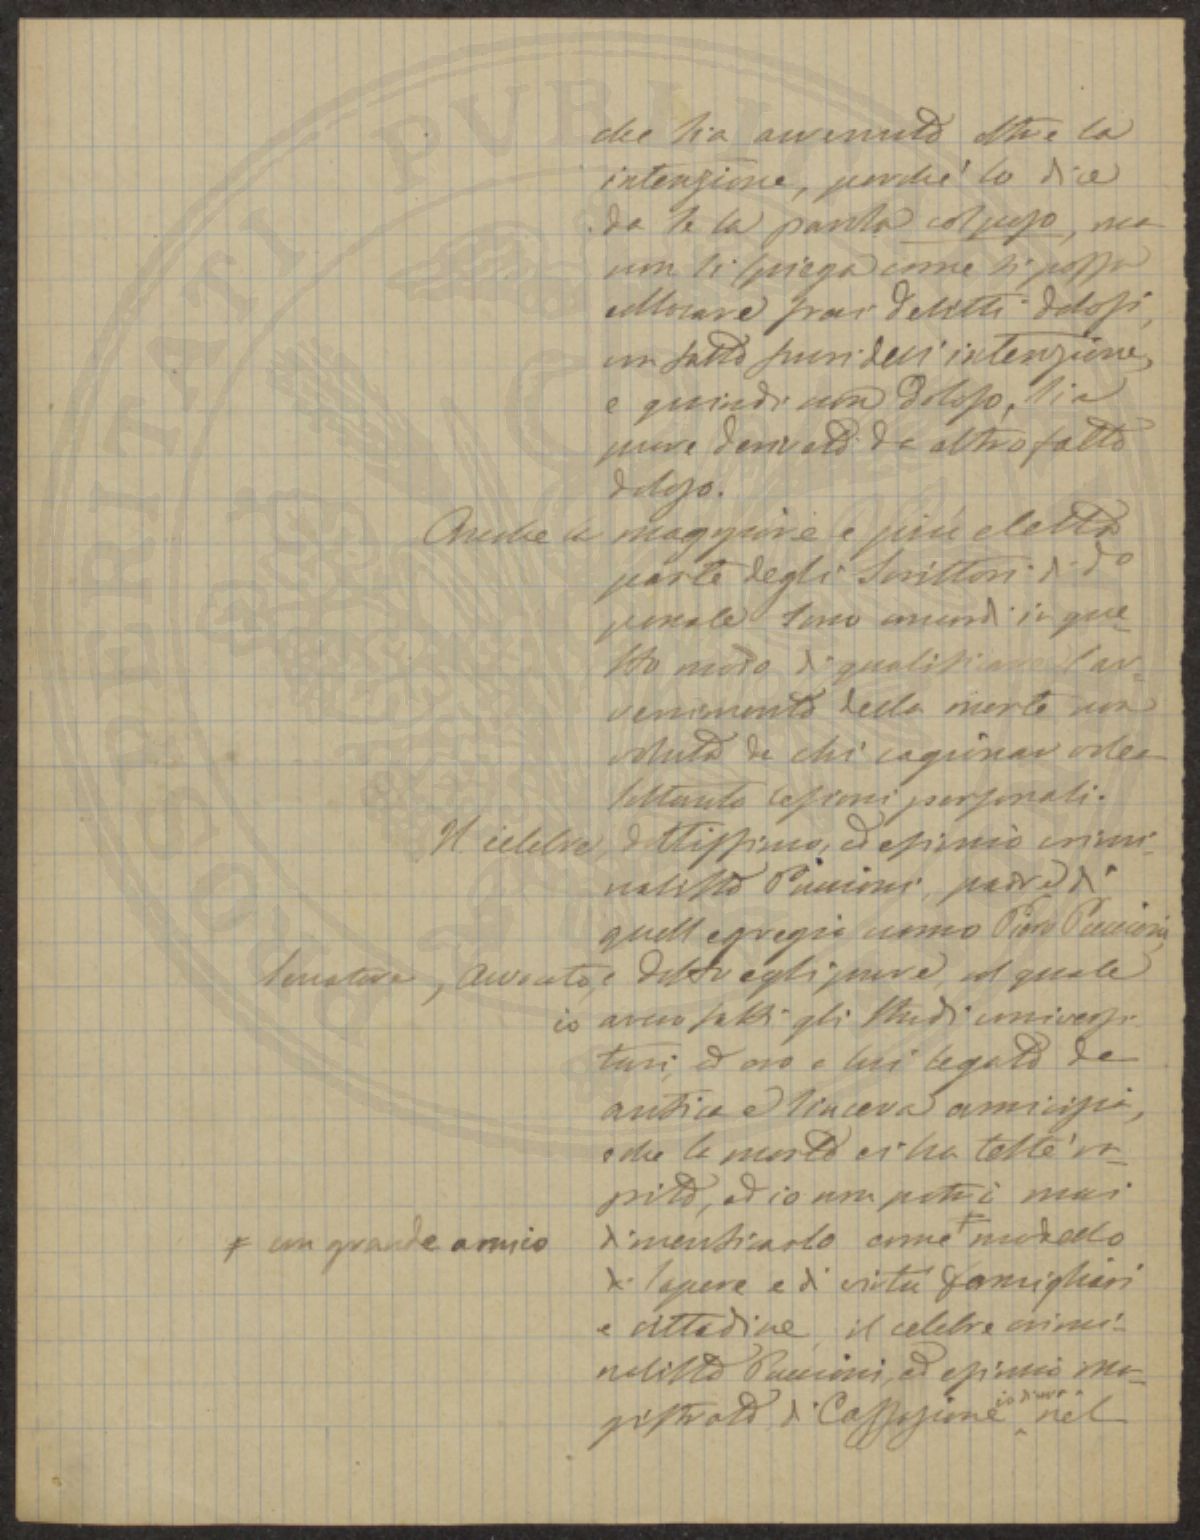 che sia avvenuto oltre la
intenzione, perchè lo dice
da se la parola colposo, ma
non si spiega come si possa
collocare frai delitti dolosi,
un fatto fuori dell'intenzione,
e quindi non doloso, sia
pure derivato da altro fatto
doloso.
Anche la maggiore e più eletta
parte degli Scrittori di d°
penale sono concordi in que-
sto modo di qualificare l'av-
venimento della morte non
voluta da chi cagionar volea
soltanto lesioni personali.
Il celebre, dottissimo, ed esimio crimi-
nalista Puccioni, padre di
quell'egregio uomo Piero Puccioni,
Senatore, Avvocato, e dotto egli pure, col quale
io aveo fatti gli studi universi-
tari, ed ero a lui legato da
antica e sincera amicizia,
e che la morte ci ha testè ra-
pito, ed io non potrò mai
dimenticarlo come ⌿ modello
⌿ un grande amico
di sapere e di virtù famigliari
e cittadine, il celebre crimi-
nalista Puccioni, ed esimio ma-
gistrato di Cassazione nel
PROSPERITATI PUBLICAE